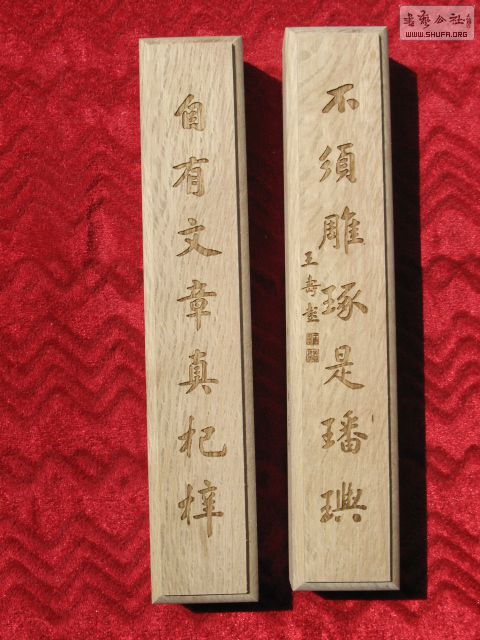 書藝公社
WWW.SHUFA.ORG
不須雕琢是璠璵
王壽彭
自有文章真杞梓